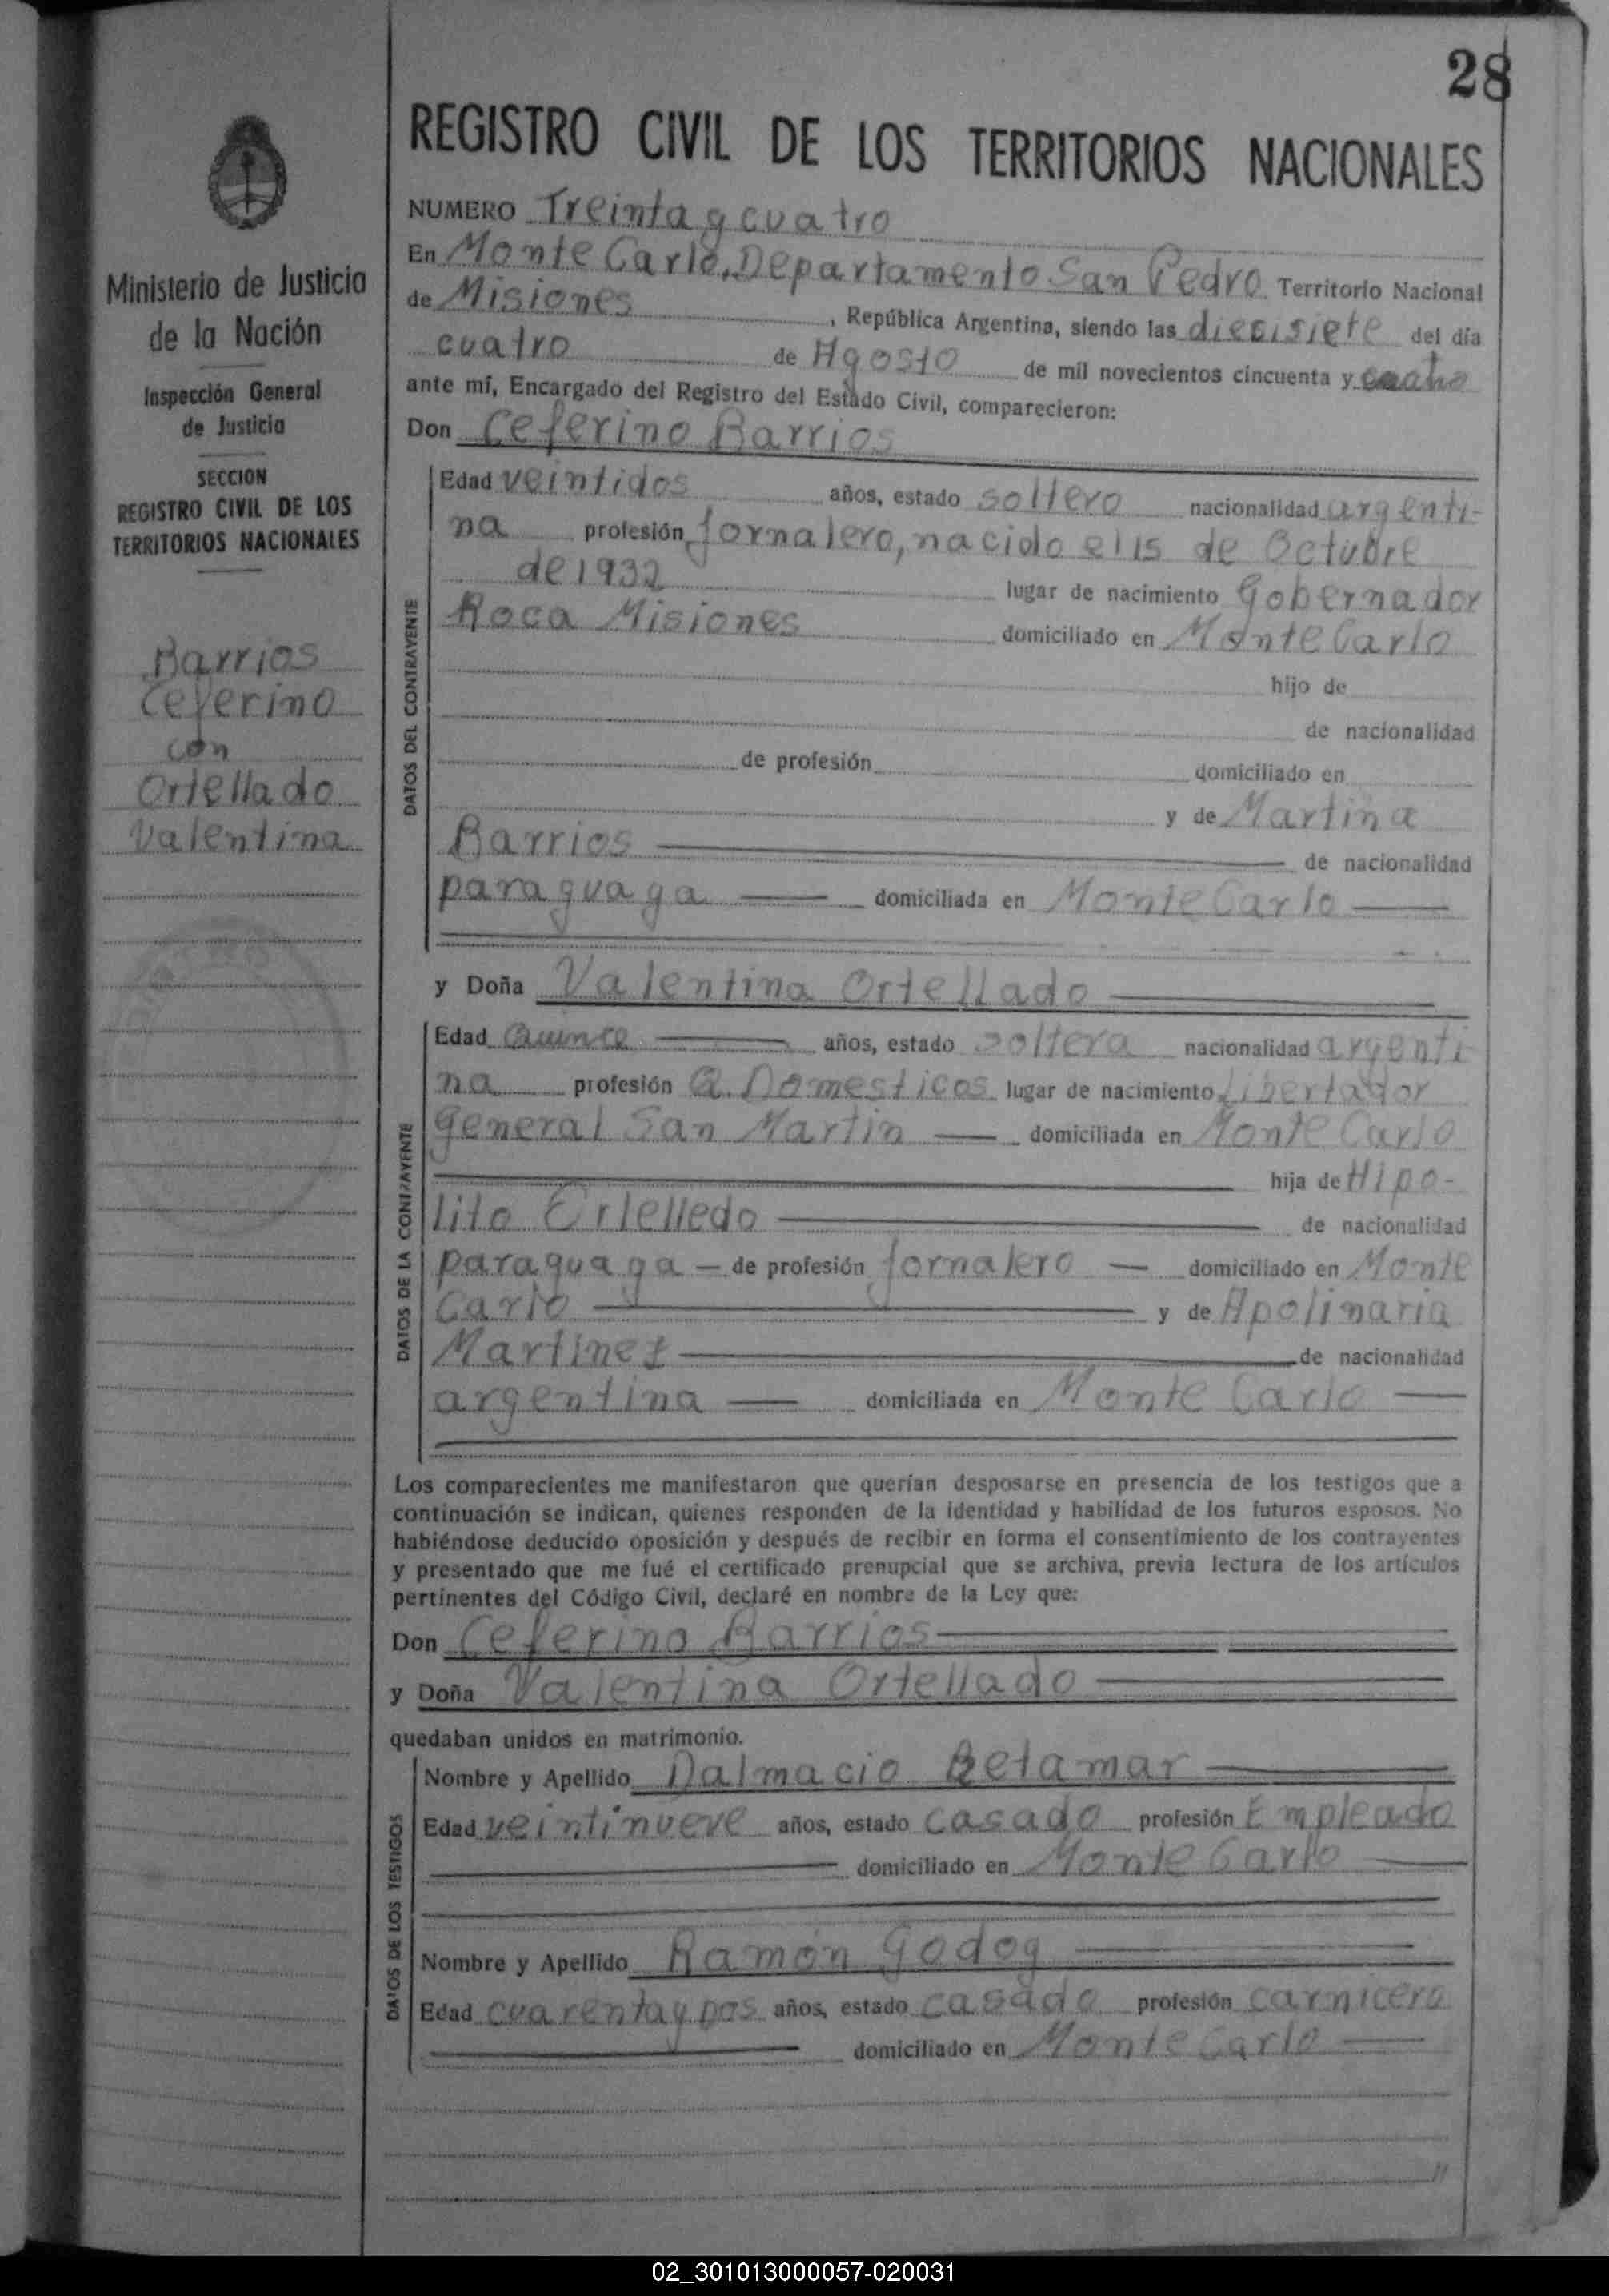 28
REGISTRO CIVIL DE LOS TERRITORIOS NACIONALES
Ministerio de Justicia
de la Nación
Inspección General
de Justicia
SECCION
REGISTRO CIVIL DE LOS
TERRITORIOS NACIONALES
Barrios
Ceferino
con
Ortellado
Valentina
NUMERO Treinta y cuatro
En Monte Carlo, Departamento San Pedro Territorio Nacional
de Misiones, República Argentina, siendo las diecisiete del día
cuatro de Agosto de mil novecientos cincuenta y cuatro
ante mí, Encargado del Registro del Estado Civil, comparecieron:
Don Ceferino Barrios
DATOS DEL CONTRAYENTE
Edad veintidos años, estado soltero nacionalidad argenti-
na profesión jornalero, nacido el 15 de Octubre
de 1932 lugar de nacimiento Gobernador
Roca Misiones domiciliado en Monte Carlo
hijo de
de nacionalidad
de profesión domiciliado en
y de Martina
Barrios de nacionalidad
paraguaya domiciliada en Monte Carlo
y Doña Valentina Ortellado
DATOS DE LA CONTRAYENTE
Edad Quince años, estado soltera nacionalidad argenti
na profesión Q. Domesticos lugar de nacimiento Libertador
General San Martin domiciliada en Monte Carlo
hija de Hipo-
lito Ortelledo de nacionalidad
paraguaya de profesión jornalero domiciliado en Monte
Carlo y de Apolinaria
Martinez de nacionalidad
argentina domiciliada en Monte Carlo
Los comparecientes me manifestaron que querían desposarse en presencia de los testigos que a
continuación se indican, quienes responden de la identidad y habilidad de los futuros esposos. No
habiéndose deducido oposición y después de recibir en forma el consentimiento de los contrayentes
y presentado que me fué el certificado prenupcial que se archiva, previa lectura de los artículos
pertinentes del Código Civil, declaré en nombre de la Ley que:
Don Ceferino Barrios
y Doña Valentina Ortellado
quedaban unidos en matrimonio.
DATOS DE LOS TESTIGOS
Nombre y Apellido Dalmacio Betamar
Edad veintinueve años, estado casado profesión Empleado
domiciliado en Monte Carlo
Nombre y Apellido Ramón Godoy
Edad cuarenta y dos años, estado casado profesión carnicero
domiciliado en Monte Carlo
02_301013000057-020031